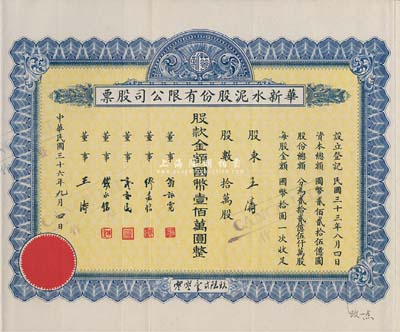 華新水泥股份有限公司股票
設立登記 民國三十三年八月四日
資本總額 國幣貳佰貳拾五億圓
股份總額 分為貳拾貳億伍仟萬股
每股金額 國幣拾圓一次收足
股東 王濤
股數 拾萬股
股款金額國幣壹佰萬圓整
董事
董事
董事
董事
董事 王濤
中華民國三十六年九月四日